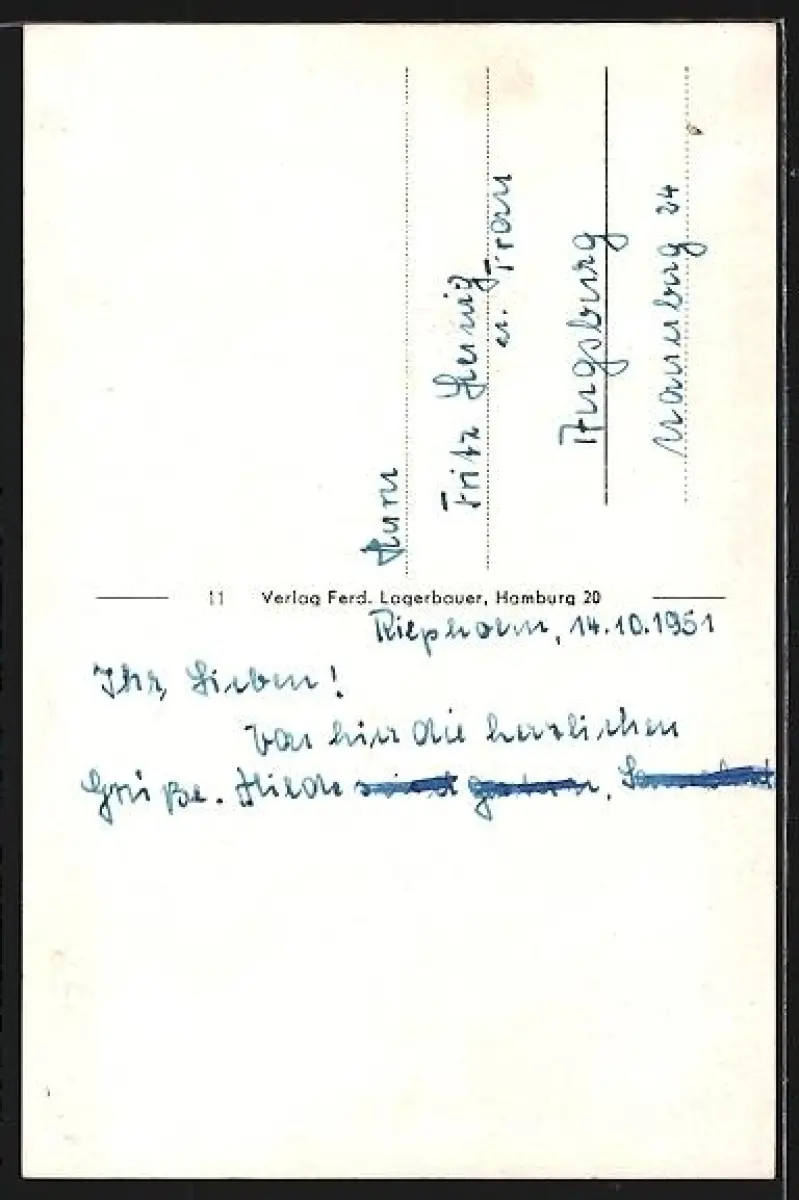 Herrn
Fritz Hennig
u. Frau
Augsburg
24
11 Verlag Ferd. Lagerbauer, Hamburg 20
Riepholm, 14.10.1951
Ihr Lieben!
Von hier die herzlichen
Grüße.